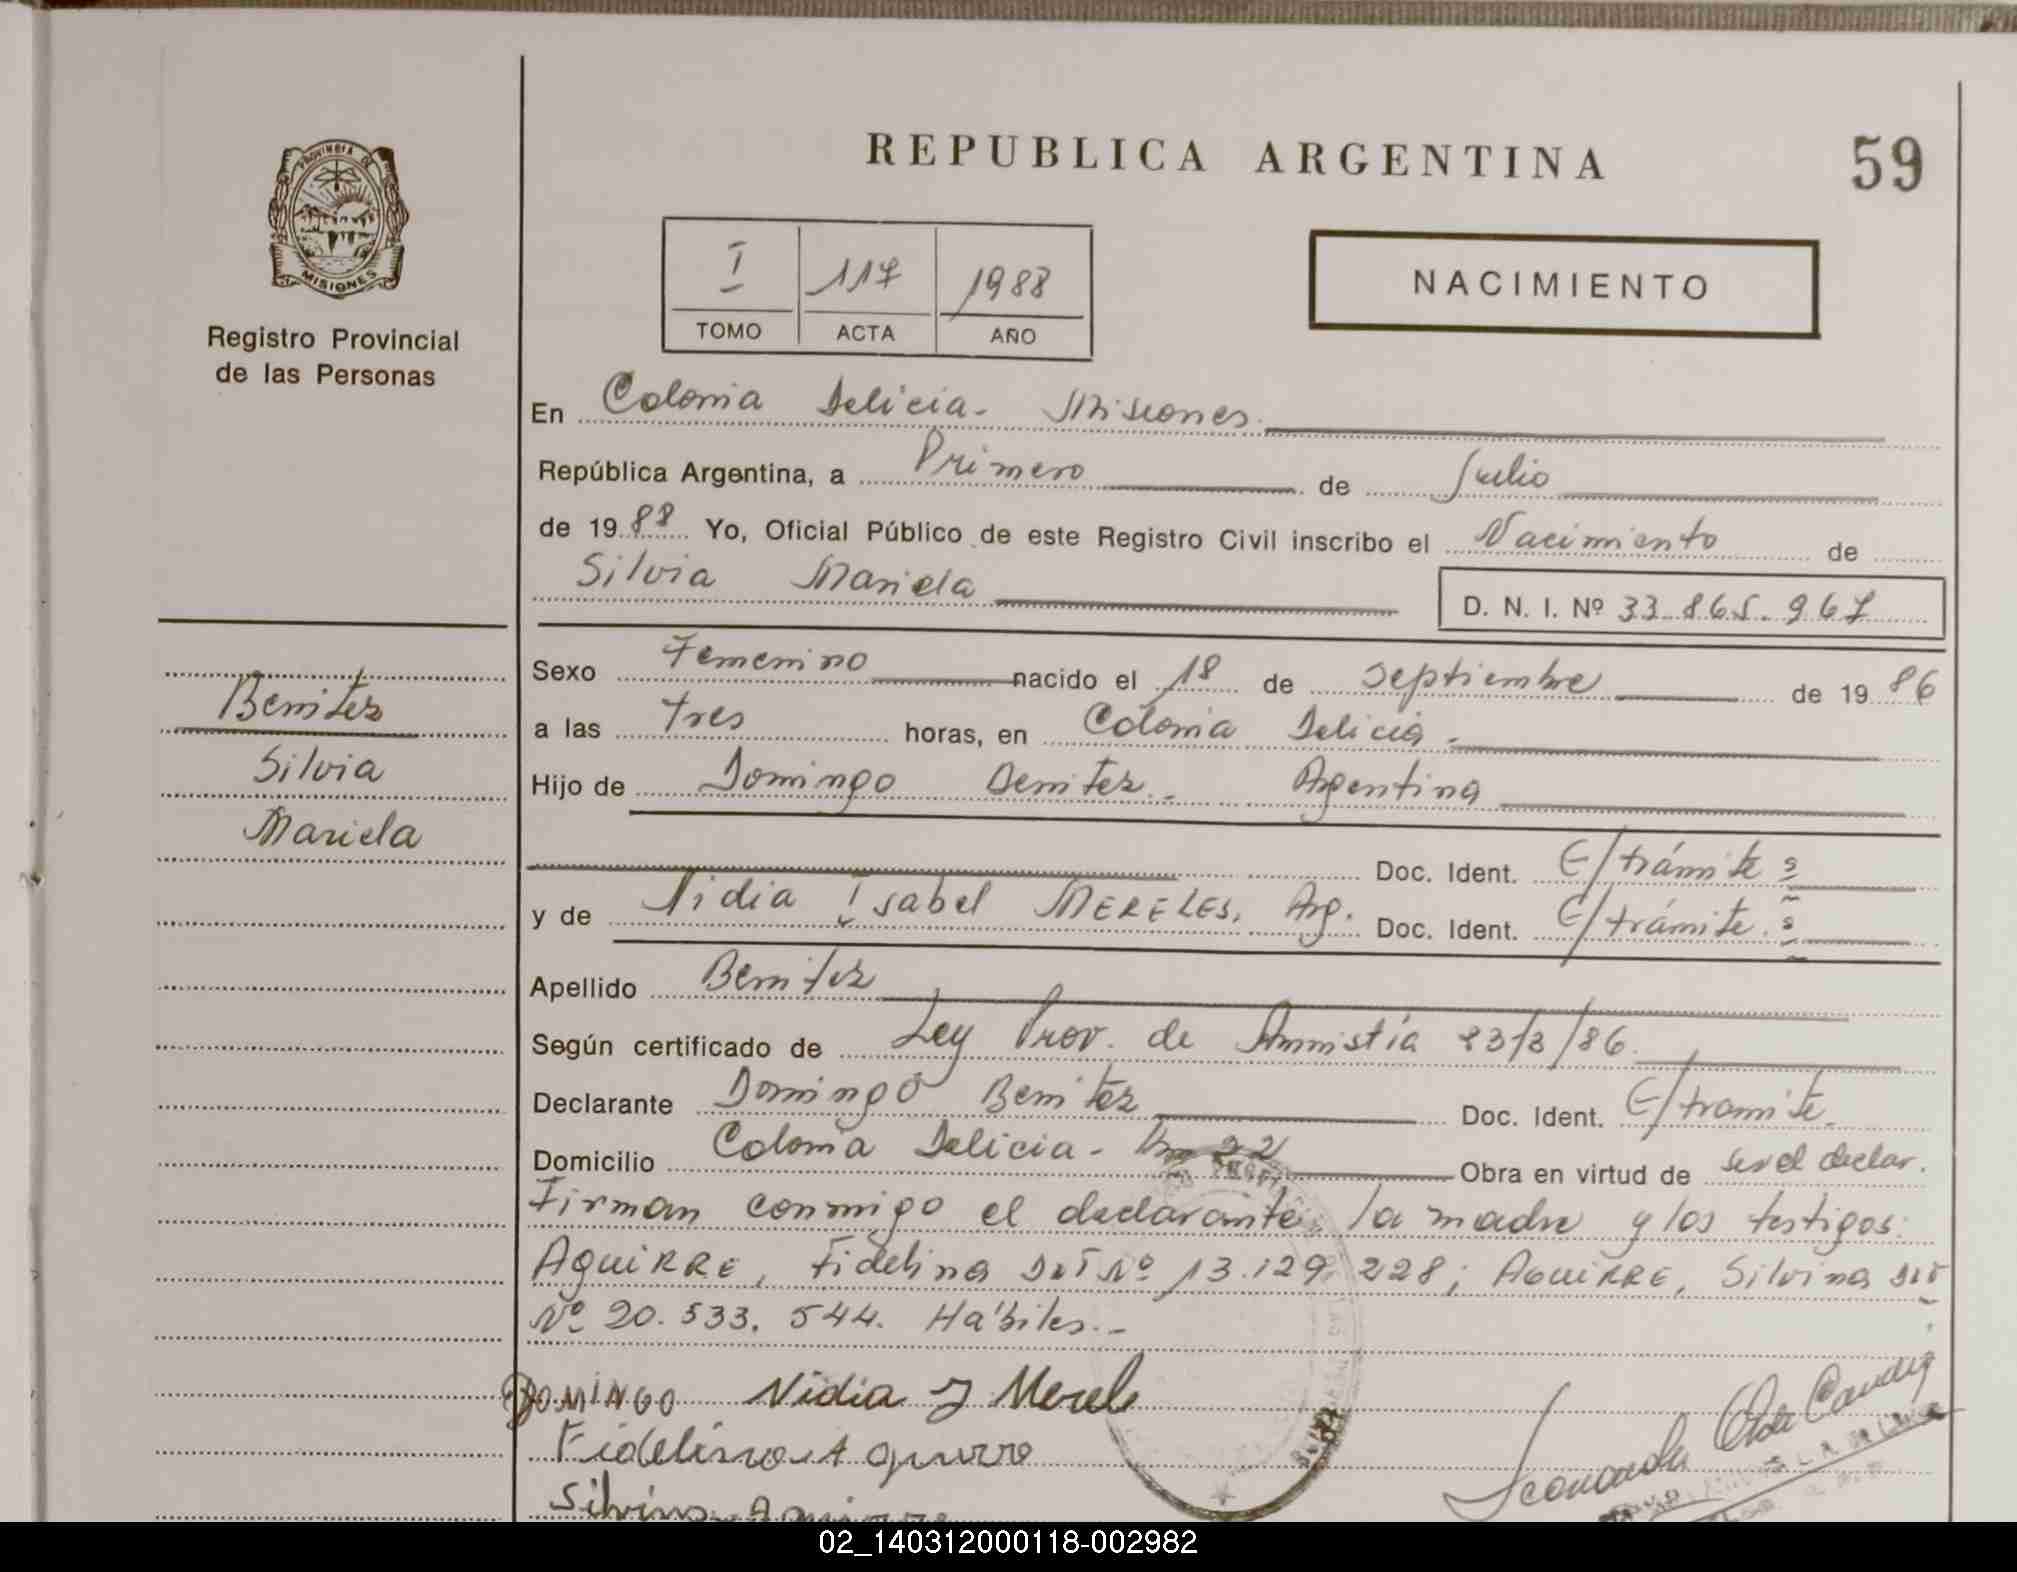 REPUBLICA ARGENTINA
59
PROVINCIA DE
MISIONES
Registro Provincial
de las Personas
I 117 1988
TOMO ACTA AÑO
NACIMIENTO
En Colonia Delicia - Misiones.
República Argentina, a Primero de Julio
de 19 88 Yo, Oficial Público de este Registro Civil inscribo el Nacimiento de
Silvia Mariela
D. N. I. Nº 33.865.967
Sexo Femenino nacido el 18 de Septiembre de 19 86
a las tres horas, en Colonia Delicia -
Hijo de Domingo Benitez - Argentina
Doc. Ident. E/trámite
y de Nidia Isabel MERELES, Arg. Doc. Ident. E/trámite
Apellido Benitez
Según certificado de Ley Prov. de Amnistía 23/3/86
Declarante Domingo Benitez Doc. Ident. E/tramite
Domicilio Colonia Delicia - Km 22 Obra en virtud de ser el declar.
Firman conmigo el declarante, la madre y los testigos:
AGUIRRE, Fidelina DNI Nº 13.129.228; AGUIRRE, Silvina DNI
Nº 20.533.544. Hábiles.-
Benitez
Silvia
Mariela
DOMINGO Nidia Y Merel
Fidelina Aguirre
Silvina Aguirre
02_140312000118-002982